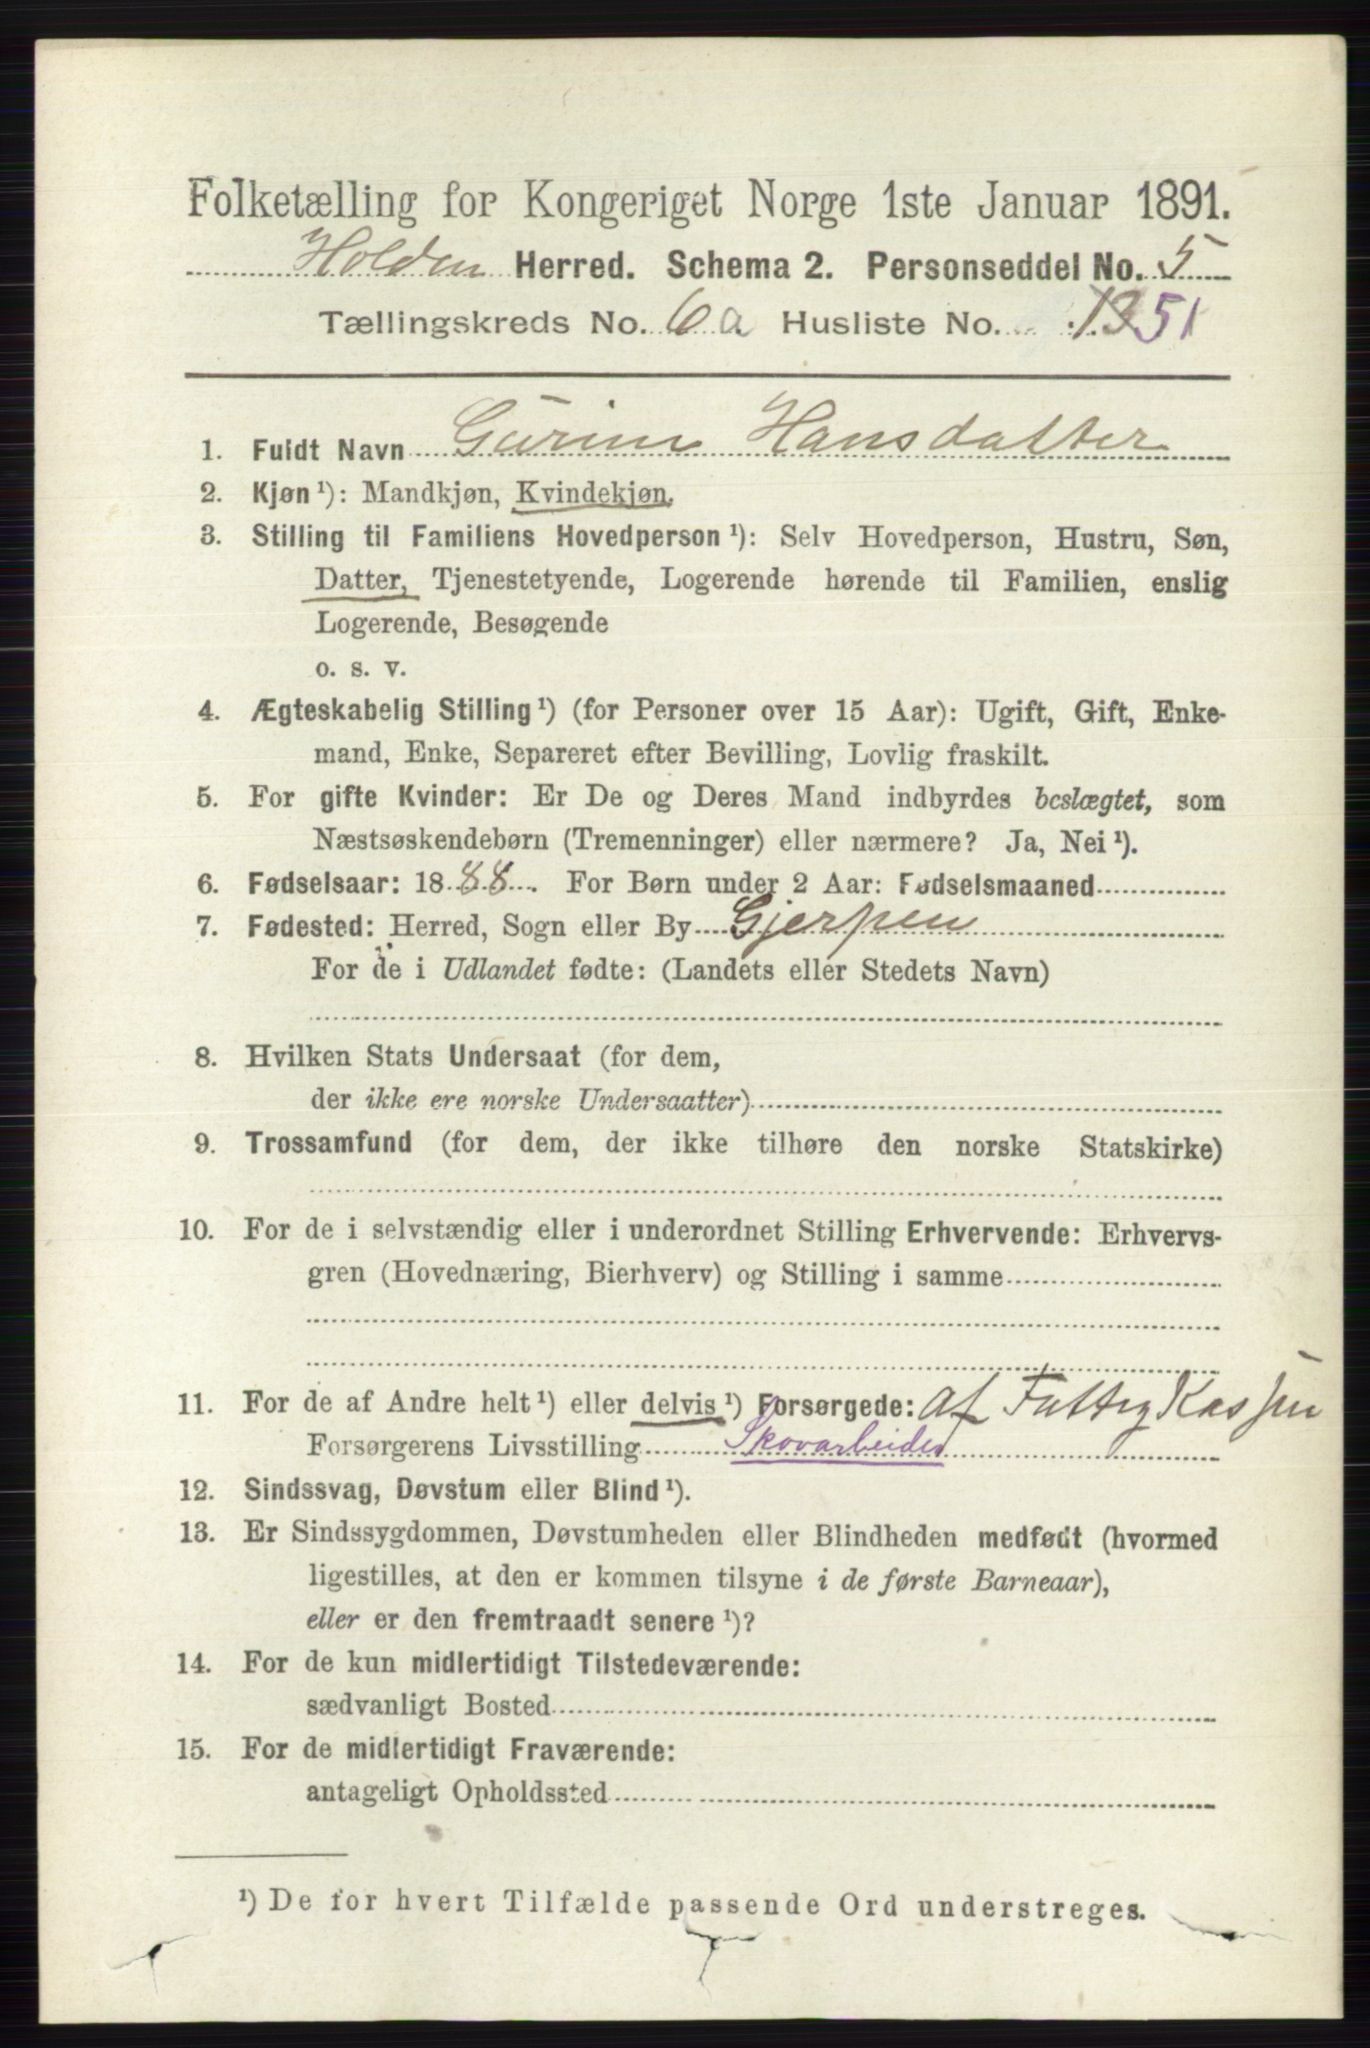 Folketælling for Kongeriget Norge 1ste Januar 1891.
Holden Herred. Schema 2. Personseddel No. 5
Tællingskreds No. 6a Husliste No. 51
1. Fuldt Navn Gurine Hansdatter
2. Kjøn ¹): Mandkjøn, Kvindekjøn.
3. Stilling til Familiens Hovedperson ¹): Selv Hovedperson, Hustru, Søn,
Datter, Tjenestetyende, Logerende hørende til Familien, enslig
Logerende, Besøgende
o. s. v.
4. Ægteskabelig Stilling ¹) (for Personer over 15 Aar): Ugift, Gift, Enke-
mand, Enke, Separeret efter Bevilling, Lovlig fraskilt.
5. For gifte Kvinder: Er De og Deres Mand indbyrdes beslægtet, som
Næstsøskendebørn (Tremenninger) eller nærmere? Ja, Nei ¹).
6. Fødselsaar: 1888. For Børn under 2 Aar: Fødselsmaaned
7. Fødested: Herred, Sogn eller By Gjerpen
For de i Udlandet fødte: (Landets eller Stedets Navn)
8. Hvilken Stats Undersaat (for dem,
der ikke ere norske Undersaatter)
9. Trossamfund (for dem, der ikke tilhøre den norske Statskirke)
10. For de i selvstændig eller i underordnet Stilling Erhvervende: Erhvervs-
gren (Hovednæring, Bierhverv) og Stilling i samme
11. For de af Andre helt ¹) eller delvis ¹) Forsørgede: af FattigKassen
Forsørgerens Livsstilling Skovarbeider
12. Sindssvag, Døvstum eller Blind ¹).
13. Er Sindssygdommen, Døvstumheden eller Blindheden medfødt (hvormed
ligestilles, at den er kommen tilsyne i de første Barneaar),
eller er den fremtraadt senere ¹)?
14. For de kun midlertidigt Tilstedeværende:
sædvanligt Bosted
15. For de midlertidigt Fraværende:
antageligt Opholdssted
¹) De for hvert Tilfælde passende Ord understreges.